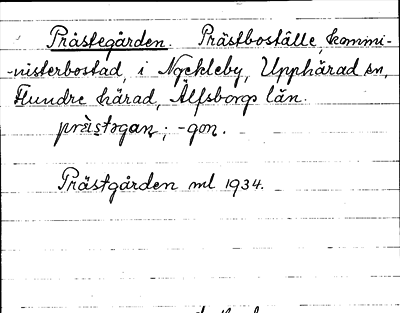 Prästegården. Prästboställe, kommi-
-nisterbostad, i Nyckleby, Upphärad sn,
Flundre härad, Älfsborgs län.
prästəgan; -gon.
Prästgården ml 1934.